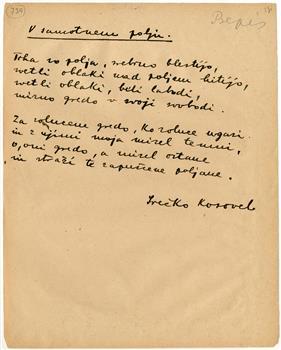 (739)
Prepis
V samotnem polju.
Tiha so polja, srebrno blestijo,
svetli oblaki nad poljem hitijo,
svetli oblaki, beli labodi,
mirno gredo v svoji svobodi.
Za solncem gredo, ko solnce ugasi
in z njimi moja misel temni,
o, oni gredo, a misel ostane
in straži te zapuščene poljane.
Srečko Kosovel